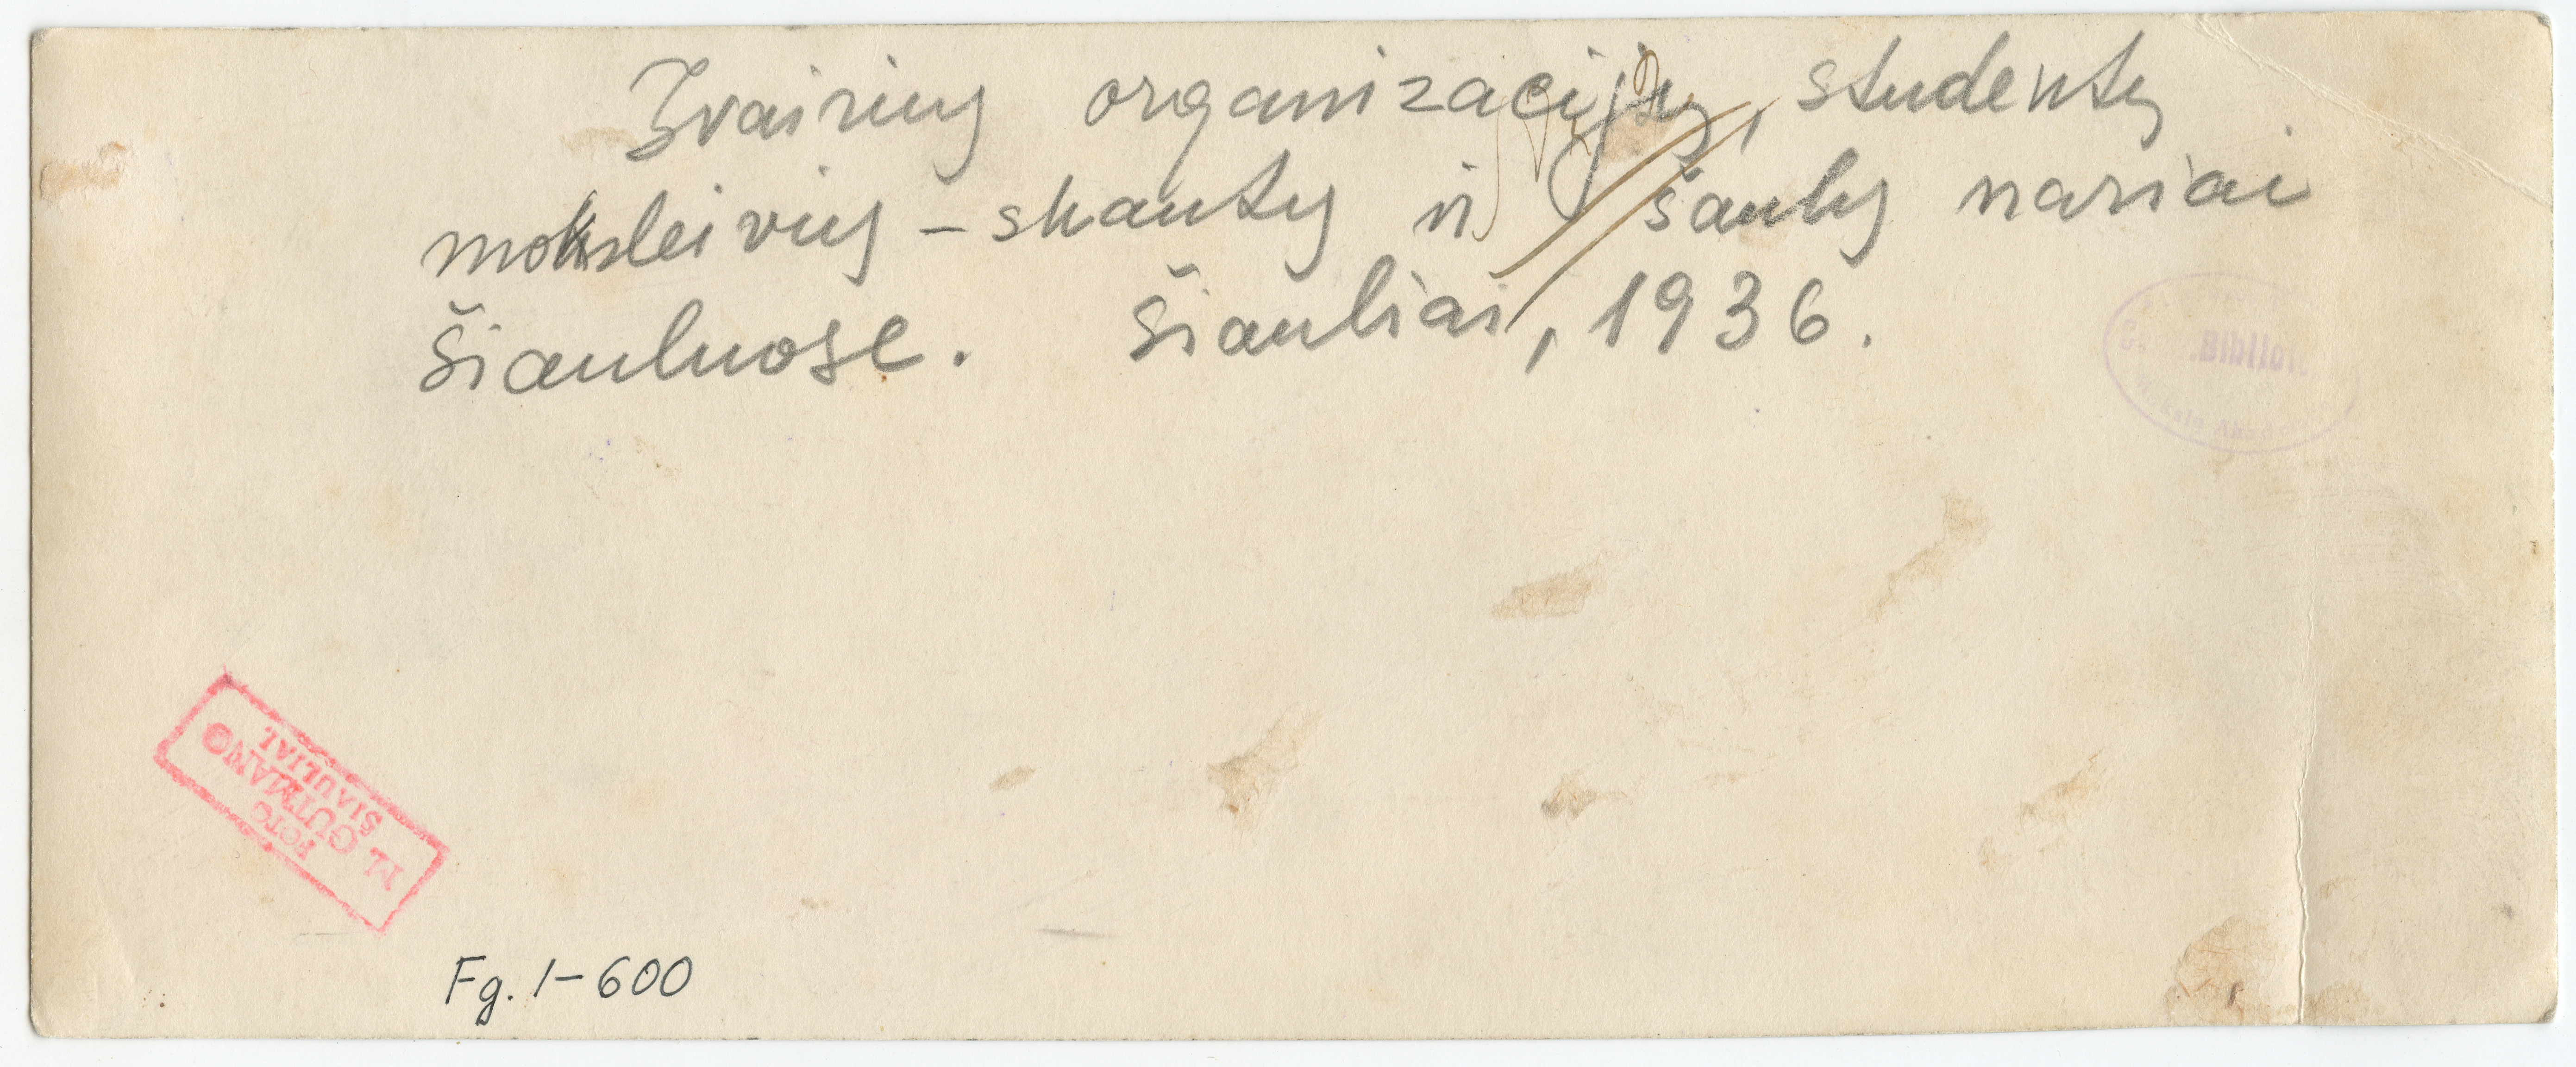 Įvairių organizacijų, studentų
moksleivių – skautų ir šaulių nariai
Šiauliuose. Šiauliai, 1936.
Bibliot.
FOTO
M. GUTMANO
ŠIAULIAI
Fg. 1-600